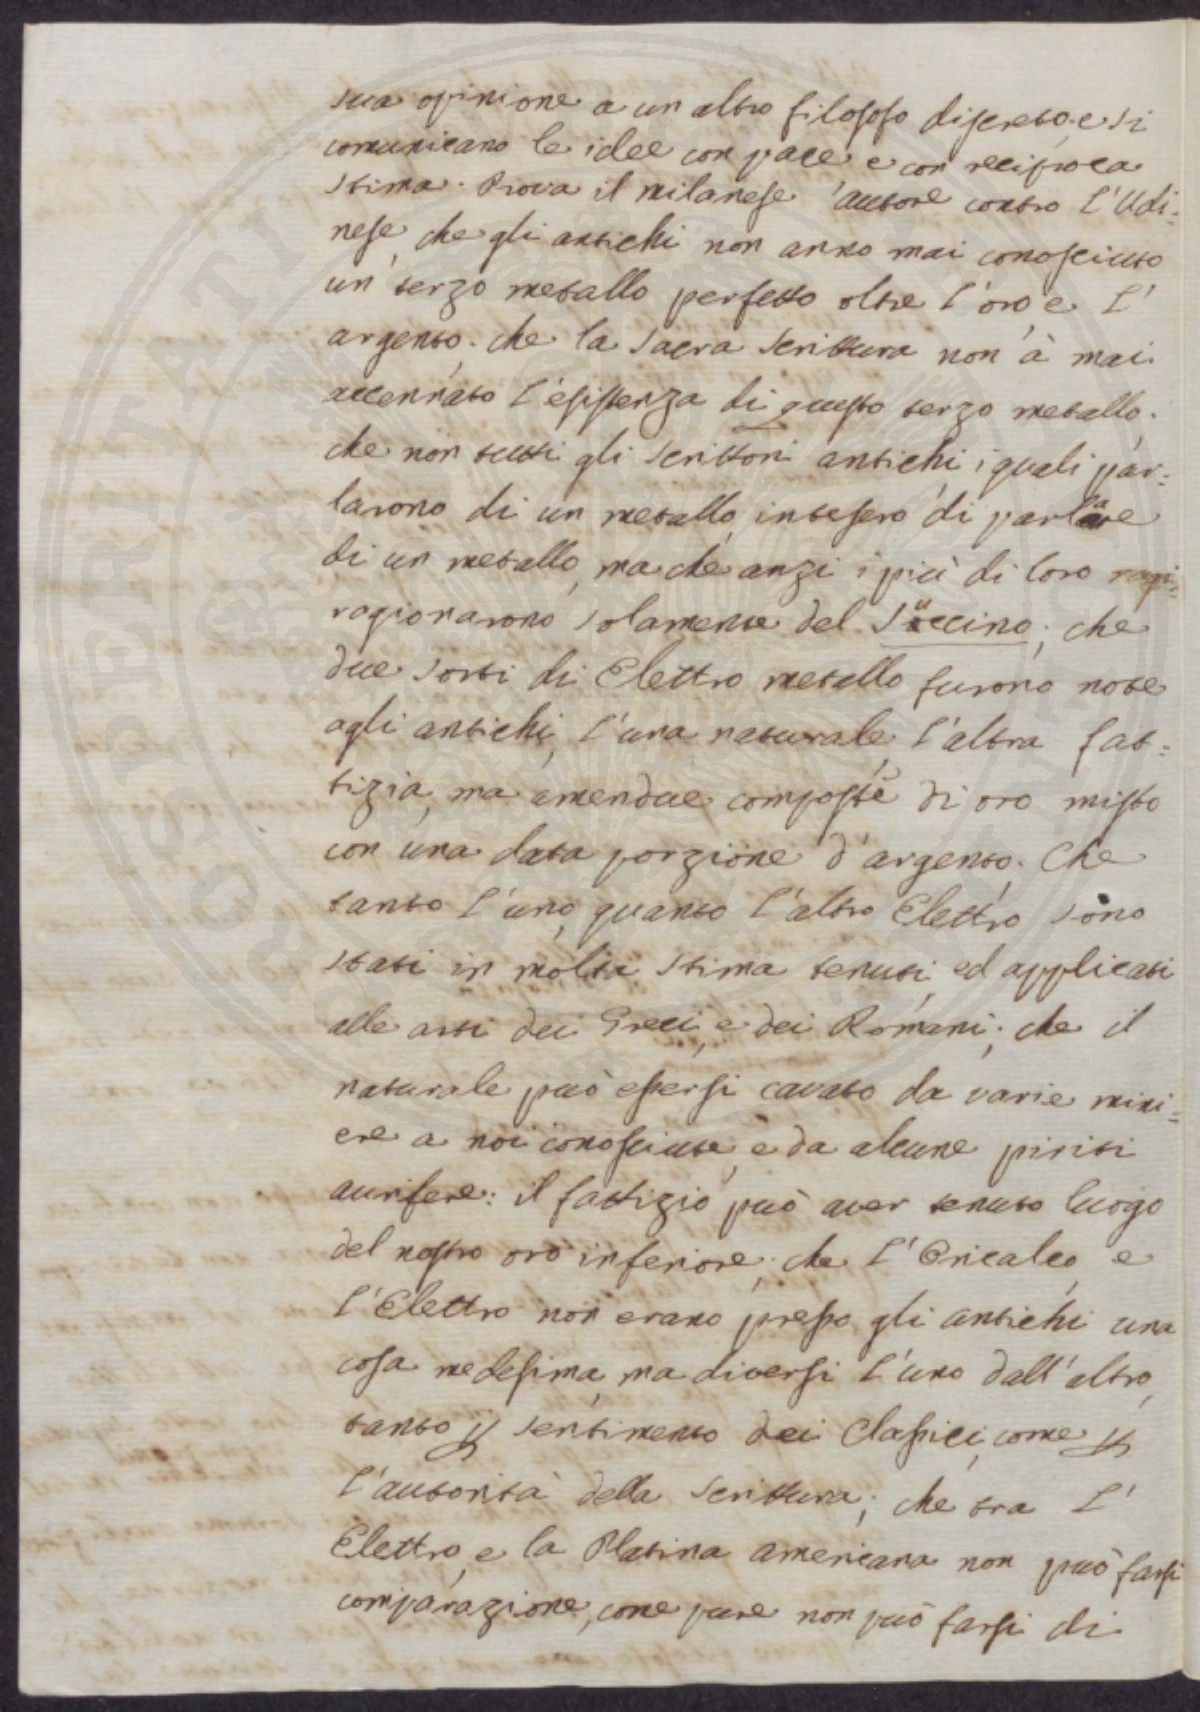 sua opinione a un altro filosofo discreto, e si
comunicano le idee con pace e con reciproca
stima. Prova il milanese autore contro l'Udi-
nese che gli antichi non anno mai conosciuto
un terzo metallo perfetto oltre l'oro e l'
argento. che la sacra scrittura non à mai
accennato l'esistenza di questo terzo metallo.
che non tutti gli scrittori antichi, i quali par-
larono di un metallo, intesero di parlare
di un metallo, ma che anzi i più di loro
ragionarono solamente del Succino; che
due sorti di Elettro metallo furono note
agli antichi, l'una naturale, l'altra fat-
tizia, ma amendue composte di oro misto
con una data porzione d'argento. Che
tanto l'uno, quanto l'altro Elettro sono
stati in molta stima tenuti, ed applicati
alle arti dei Greci, e dei Romani; che il
naturale può essersi cavato da varie mini-
ere a noi conosciute, e da alcune piriti
aurifere: il fattizio può aver tenuto luogo
del nostro oro inferiore; che l'Oricalco, e
l'Elettro non erano presso gli antichi una
cosa medesima, ma diversi l'uno dall'altro,
tanto p sentimento dei Classici, come p
l'autorità della scrittura; che tra l'
Elettro, e la Platina americana non può farsi
comparazione, come pure non può farsi di
SPERITATI